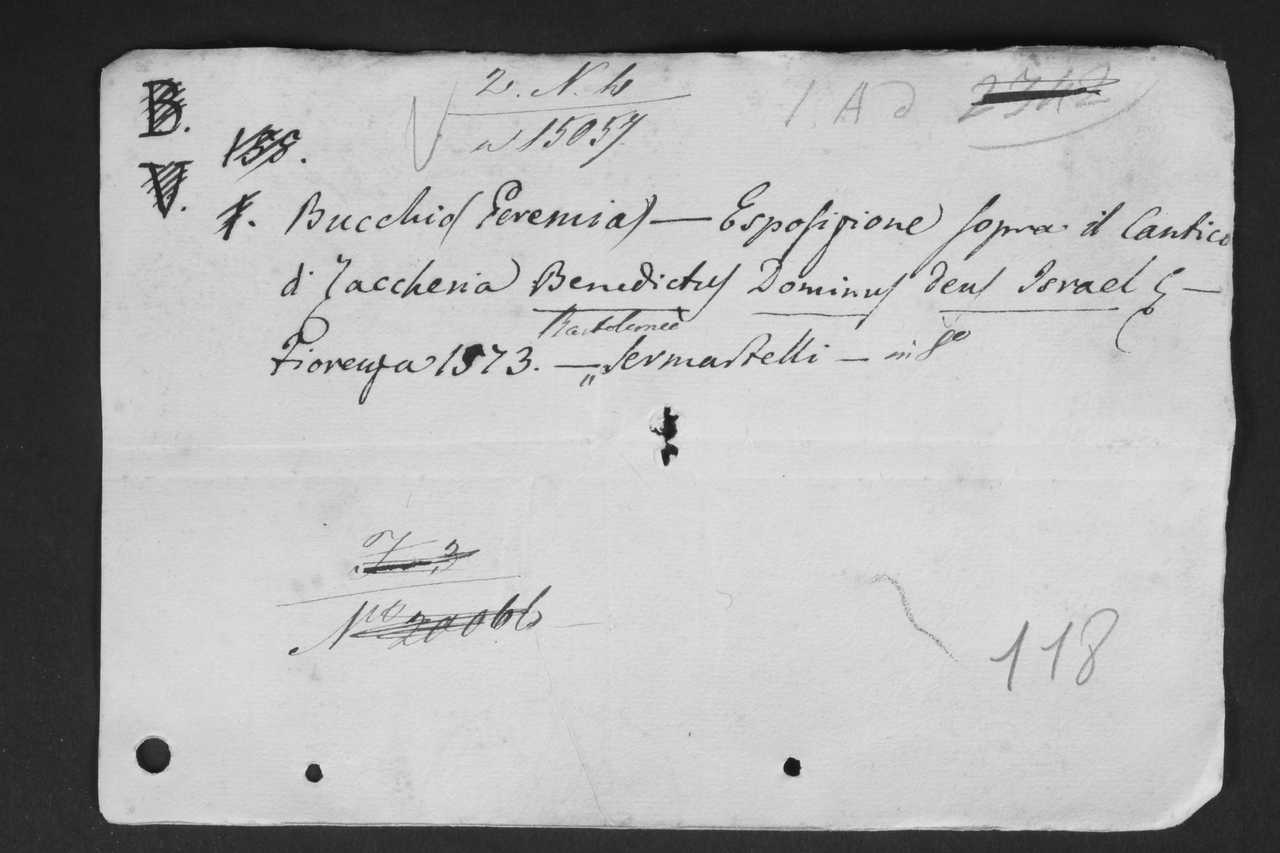 B.
V.
2. N. 6
a 15057
1 A d 2742
158.
1. Bucchio (Geremia) — Esposizione sopra il Cantico
di Zaccheria Benedictus Dominus Deus Israel &c —
Bartolomeo
Fiorenza 1573. — „ Sermartelli — in 8o
No 20066
118